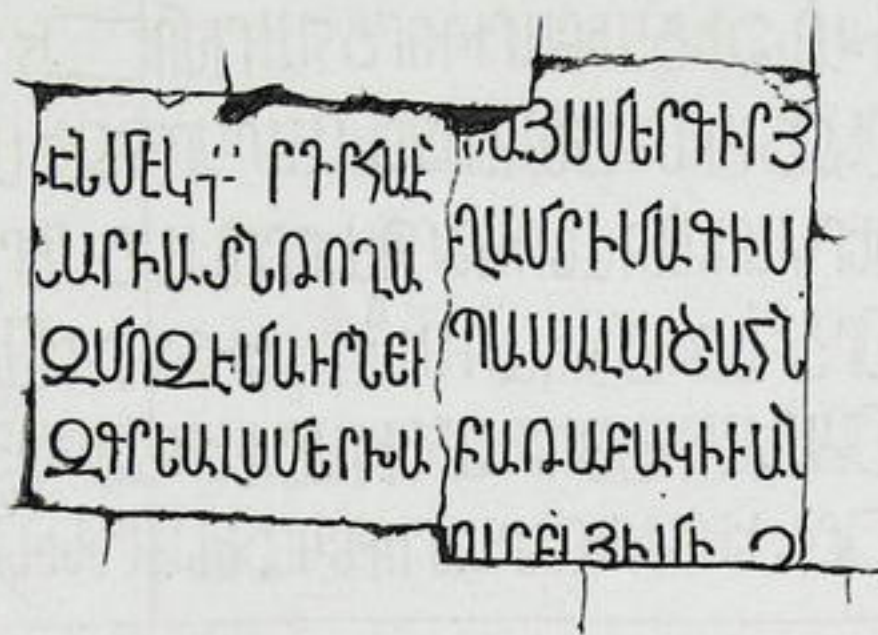 ԷՆՄԷԿ ՐԴՐՀԱԷ
ԱՐԻՍ ՄՆՌՈՂԱ
ԶՄՈԶԷՄԱՒՐՆԵՒ
ԶԳՐԵԱԼՍՄԵՐԽԱ
ԱՅՍՄԵՐԳԻՐՅ
ՂԱՄՐԻՄԱԳԻՍ
ՊԱՍԱԼԱՐԾԱՀՆ
ԲԱՌԱԲԱԿԻՒԱՆ